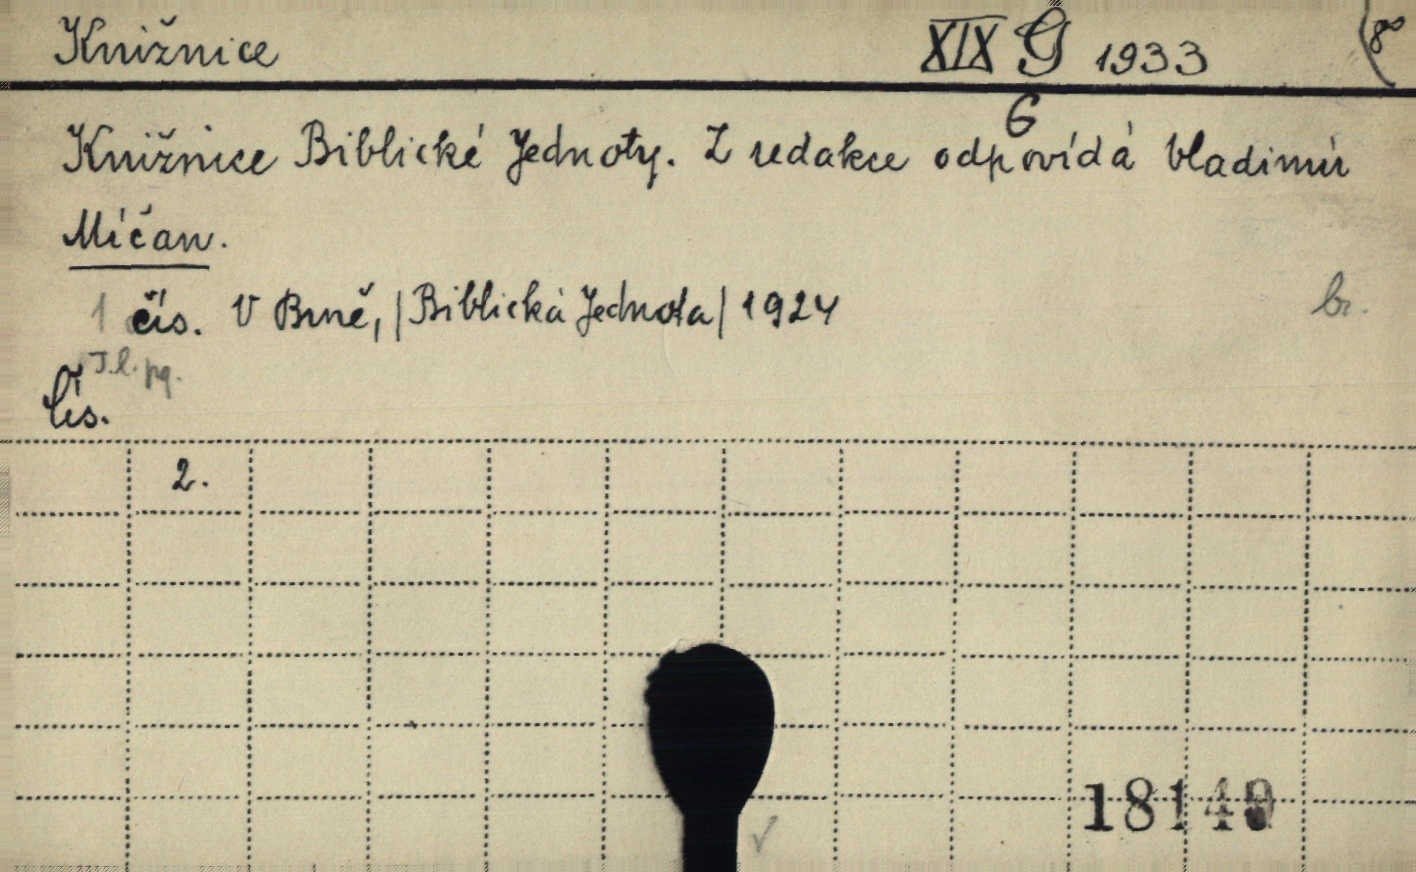 Knižnice XIX G 1933 8°
6
Knižnice Biblické Jednoty. Z redakce odpovídá Vladimír
Míčan.
1 čís. V Brně, |Biblická Jednota| 1924 br.
Čís.
2.